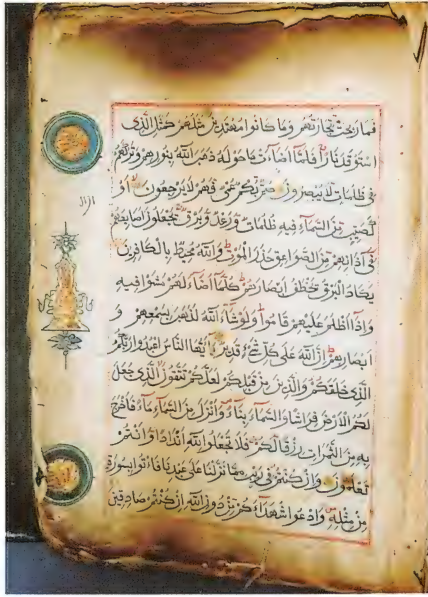 فما ربحت تجارتهم وما كانوا مهتدين مثلهم كمثل الذى
استوقد نارا فلما اضاءت ما حوله ذهب الله بنورهم وتركهم
فى ظلمات لا يبصرون صم بكم عمى فهم لا يرجعون او
كصيب من السماء فيه ظلمات ورعد وبرق يجعلون اصابعهم
فى آذانهم من الصواعق حذر الموت والله محيط بالكافرين
يكاد البرق يخطف ابصارهم كلما اضاء لهم مشوا فيه
واذا اظلم عليهم قاموا ولو شاء الله لذهب بسمعهم و
ابصارهم ان الله على كل شىء قدير يا ايها الناس اعبدوا ربكم
الذى خلقكم والذين من قبلكم لعلكم تتقون الذى جعل
لكم الارض فراشا والسماء بناء وانزل من السماء ماء فاخرج
به من الثمرات رزقا لكم فلا تجعلوا لله اندادا وانتم
تعلمون وان كنتم فى ريب مما نزلنا على عبدنا فاتوا بسورة
من مثله وادعوا شهداءكم من دون الله ان كنتم صادقين